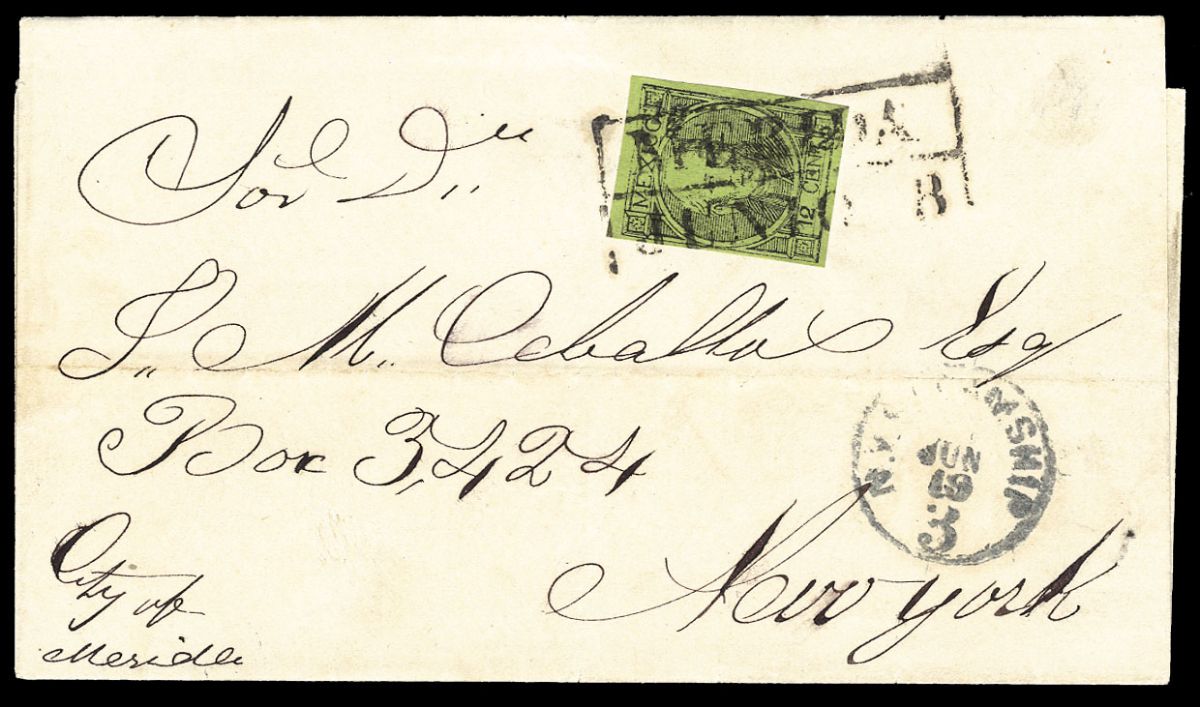 Sor Dn
J. M. Ceballos Esq
Box 3,424
New York
City of
Merida
MEXICO
12 CENT
DA
B
N.Y. STEAMSHIP
JUN
3